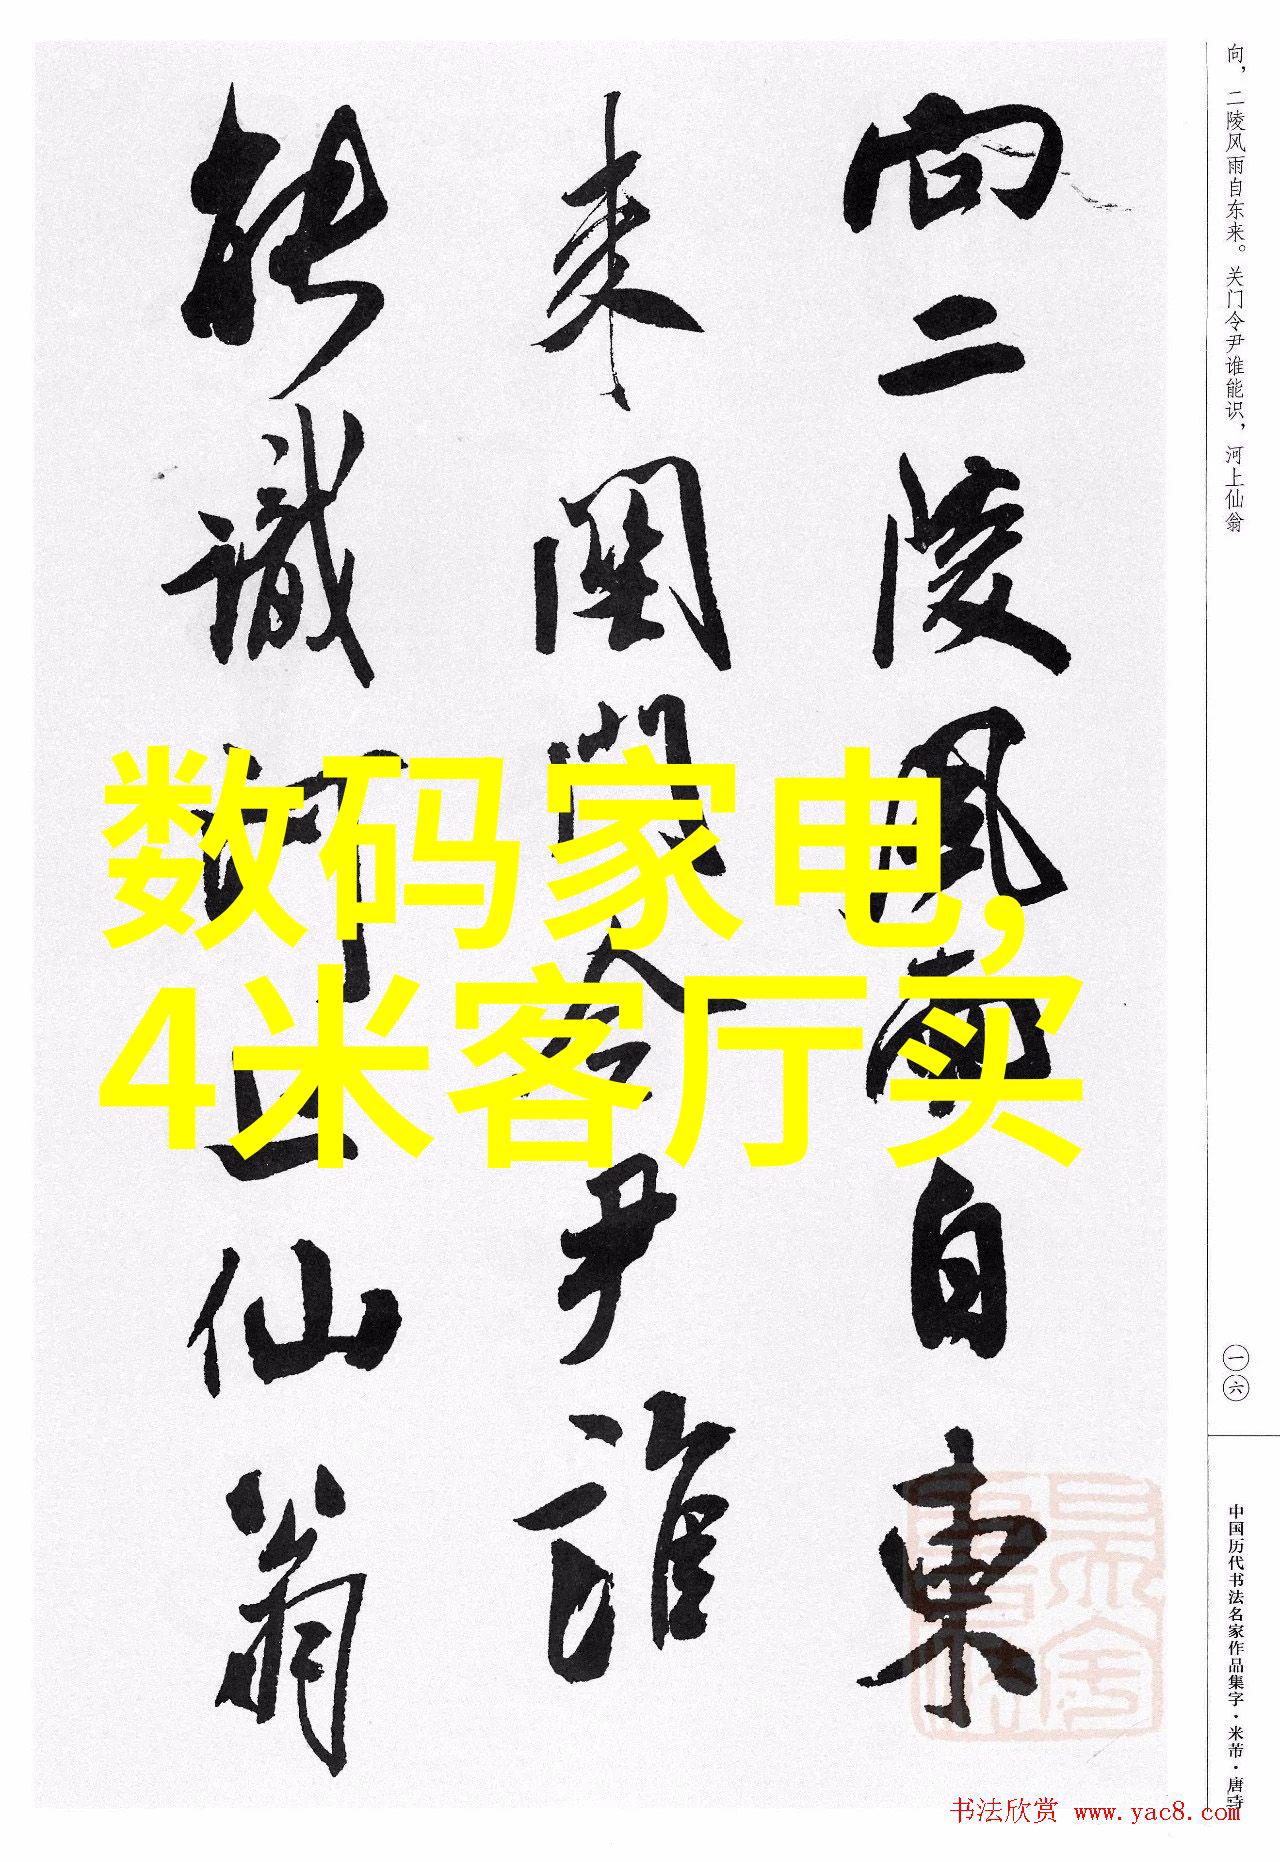 向二陵風雨自東
来関門令尹誰
能識河上仙翁
数码家电,
4米客厅卖
向，二陵风雨自东来。关门令尹谁能识，河上仙翁
一六
中国历代书法名家作品集字·米芾·唐诗
书法欣赏 www.yac8.com